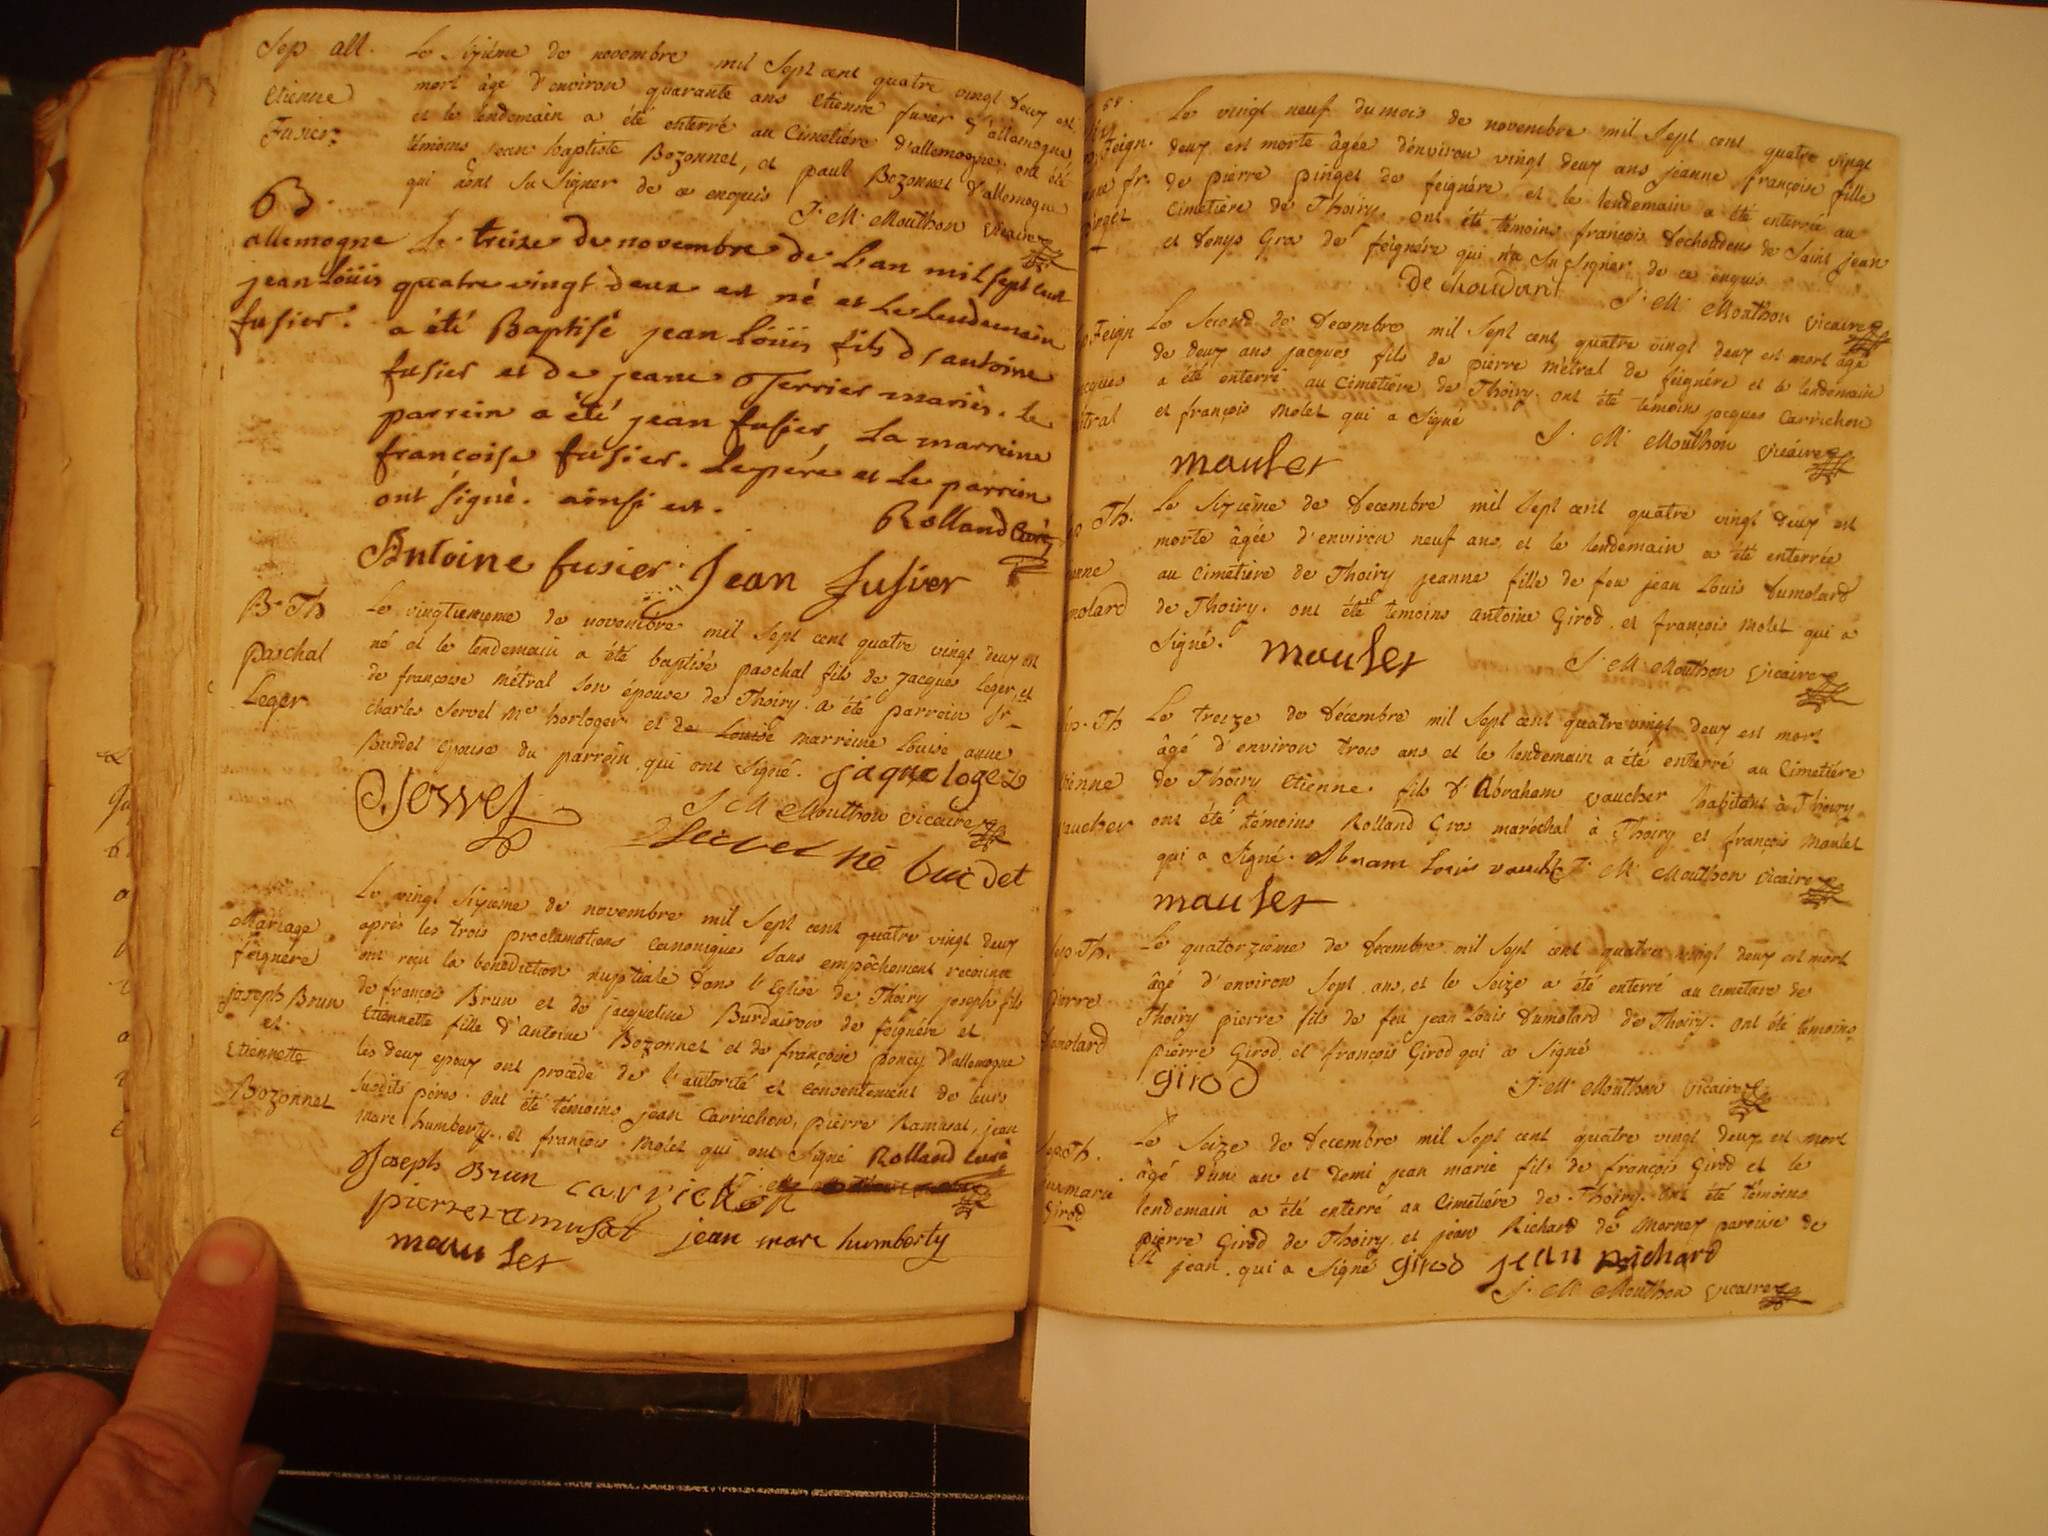 Sep all.
Etienne
Fusier
Le Sixième de novembre mil Sept cent quatre vingt deux est
mort âgé d'environ quarante ans Etienne fusier d'allemogne,
et le lendemain a été enterré au Cimetiére d'allemogne. ont été
témoins jean baptiste Bozonnet, et paul Bozonnet d'allemogne
qui n'ont Su Signer de ce enquis
J. M. Mouthon vicaire
B.
allemogne
jean Loüis
fusier.
Le treize de novembre de L'an mil sept cent
quatre vingt deux est né et Le Lendemain
a été Baptisé jean Loüis fils d'antoine
fusier et de jeane Terrier mariés. Le
parrein a été jean fusier, La marreine
francoise fusier. Le père et Le parrein
ont signé. ainsi est.
Rolland Curé
Antoine fusier Jean fusier
B. Th
paschal
Leger
Le vingtunieme de novembre mil Sept cent quatre vingt deux est
né et le lendemain a été baptisé paschal fils de jacques Leger, et
de françoise métral Son épouse de Thoiry. a été parrein Sr
charles Servel Me horloger et de Louise marreine Louise anne
Burdet épouse du parrein, qui ont Signé. jaque loger
C. Servel
J M Mouthon vicaire
Servel né burdet
Mariage
feignére
joseph Brun
et
Etiennette
Bozonnet
Le vingt Sixieme de novembre mil Sept cent quatre vingt deux
après les trois proclamations canoniques Sans empêchement reconnu
ont reçu la bénédiction nuptiale dans l'Eglise de Thoiry joseph fils
de françois Brun et de jacqueline Burdairon de feignére et
Etiennette fille d'Antoine Bozonnet et de françoise poncy d'allemogne
les deux epoux ont procédé de l'autorité et consentement de leurs
Susdits péres. ont été témoins jean Carrichon, pierre Ramusat, jean
marc humberty, et françois molet qui ont Signé Rolland Curé
Joseph Brun carrichon
pierre ramusat jean marc humberty
maulet
58.
Feign.
Le vingt neuf du mois de novembre mil Sept cent quatre vingt
deux est morte âgée d'environ vingt deux ans jeanne françoise fille
de pierre pinget de feignére et le lendemain a été enterrée au
Cimetière de Thoiry. ont été témoins françois dechoudens de Saint jean
et denys Gra de feignére qui n'a Su Signer de ce enquis
de choudan
J. M. Mouthon vicaire
Feign
Le Second de Decembre mil Sept cent quatre vingt deux est mort âgé
de deux ans jacques fils de pierre métral de feignére et le lendemain
a été enterré au Cimetiére de Thoiry. ont été témoins jacques Carrichon
et françois molet qui a Signé
J. M. Mouthon vicaire
maulet
Th.
Le Sixième de Decembre mil Sept cent quatre vingt deux est
morte âgée d'environ neuf ans, et le lendemain a été enterrée
au cimetiére de Thoiry jeanne fille de feu jean Louis dumolard
de Thoiry. ont été témoins antoine Girod et françois molet qui a
Signé. maulet
J. M Mouthon vicaire
Th
Le treize de décembre mil Sept cent quatre vingt deux est mort
âgé d'environ trois ans et le lendemain a été enterré au Cimetiére
de Thoiry Etienne fils d'Abraham vaucher habitant à Thoiry
ont été témoins Rolland Gros maréchal à Thoiry et françois Maulet
qui a Signé. Abram Louis vauché J. M. Mouthon vicaire
maulet
Th.
pierre
dumolard
Le quatorzième de Decembre mil Sept cent quatre vingt deux est mort
âgé d'environ Sept ans, et le Seize a été enterré au cimetiere de
Thoiry pierre fils de feu jean Louis dumolard de Thoiry. ont été témoins
pierre Girod et françois Girod qui a Signé
girod
J. M. Mouthon vicaire
Th.
jean marie
Girod
Le Seize de Decembre mil Sept cent quatre vingt deux est mort
âgé d'un an et demi jean marie fils de françois Girod et le
lendemain a été enterré au Cimetiére de Thoiry. ont été témoins
pierre Girod de Thoiry et jean Richard de Mornex paroisse de
St jean qui a Signé girod jean richard
J. M. Mouthon vicaire